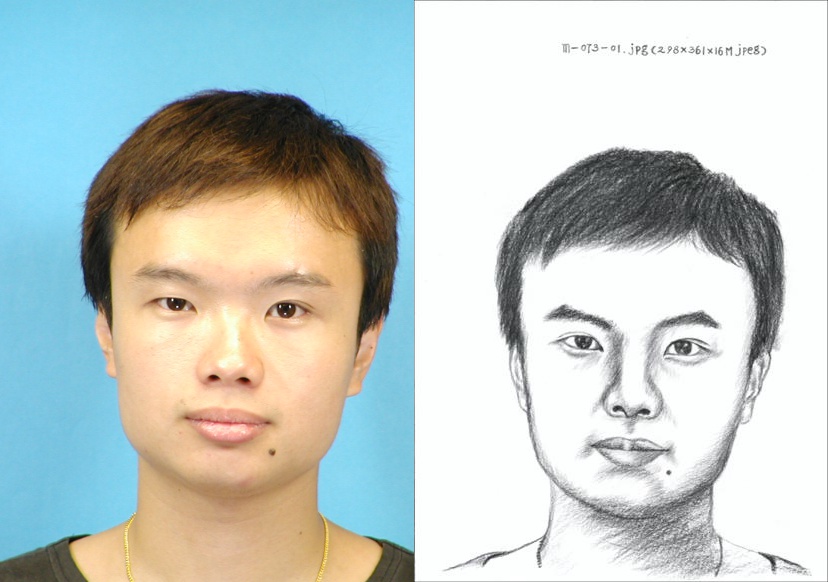 m-073-01.jpg(298×361×16M jpeg)